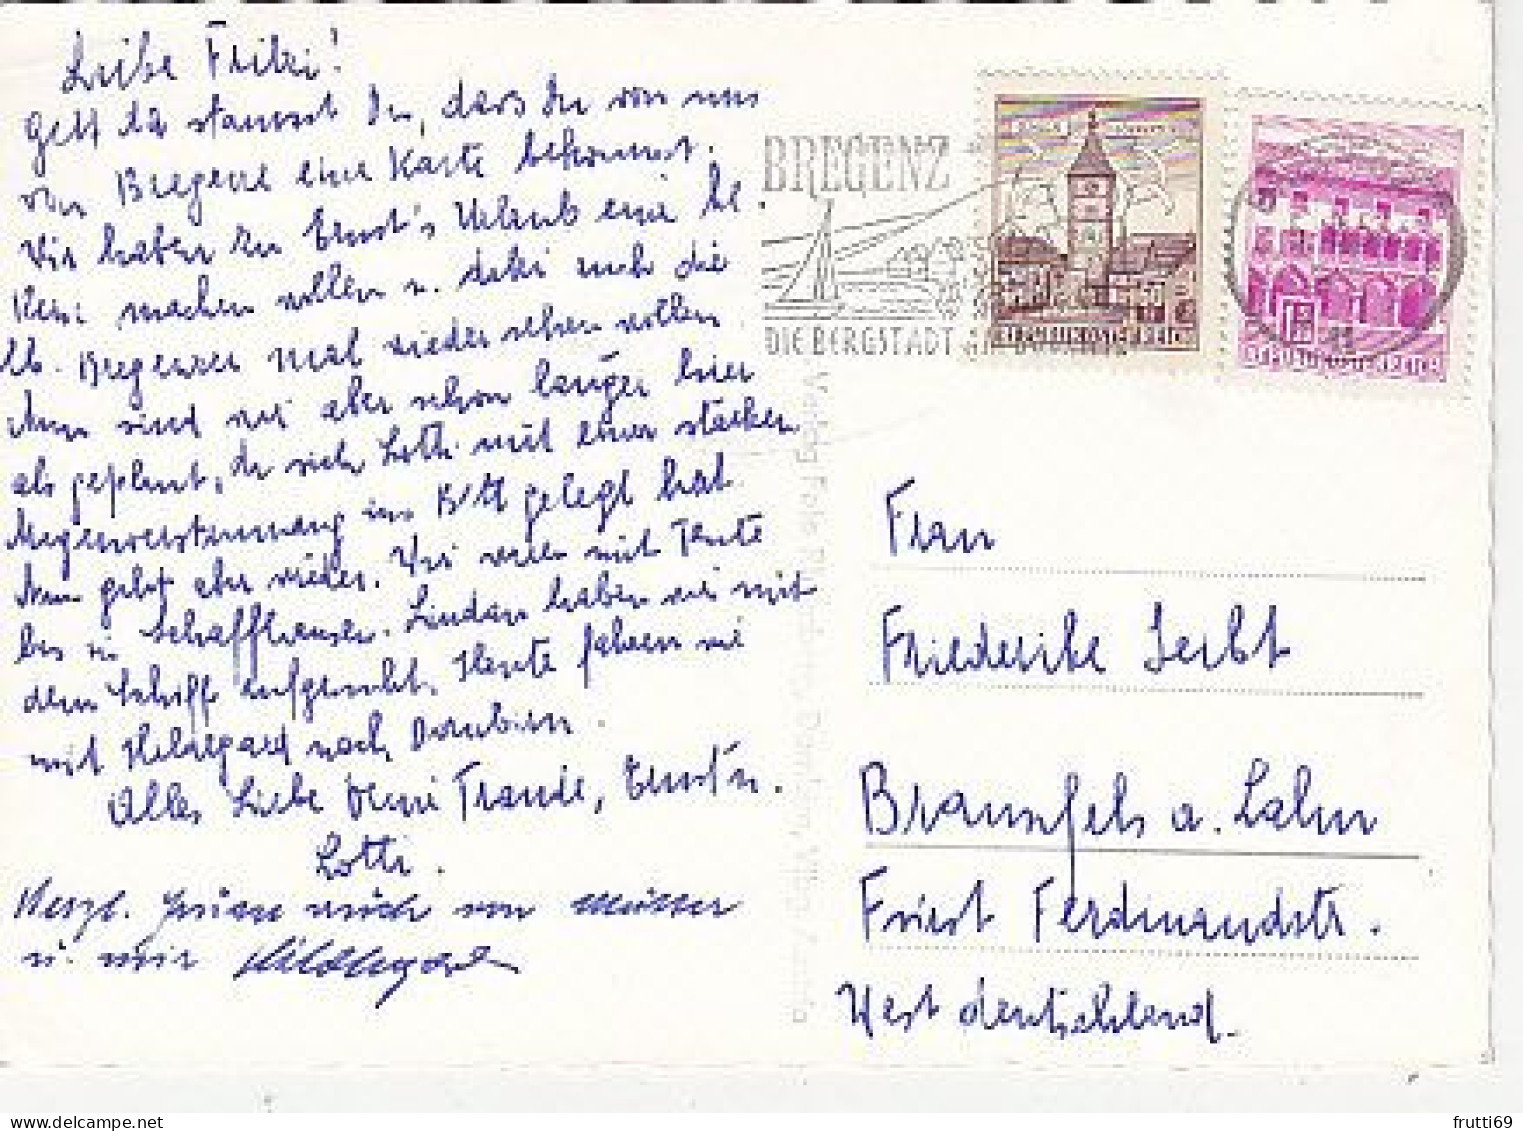 Liebe Fritzi!
Gell da staunst Du, dass Du von uns
von Bregenz eine Karte bekommst.
Wir haben zu Ernst's Urlaub eine kl.
Reise machen wollen u. dabei auch die
lb. Bregenzer mal wieder sehen wollen
Nun sind wir aber schon länger hier
als geplant, da sich Lotti mit einer starken
Magenverstimmung ins Bett gelegt hat
Nun geht's aber wieder. Wir waren mit Tante
bis in Schaffhausen. Lindau haben wir mit
dem Schiff aufgesucht. Heute fahren wir
mit Hildegard nach Dornbirn.
Alles Liebe Deine Traude, Ernst u.
Lotti.
Herzl. Grüsse auch von Mutter
u. mir Hildegard
BREGENZ
DIE BERGSTADT AM BODENSEE
REPUBLIK ÖSTERREICH
REPUBLIK ÖSTERREICH
Frau
Friederike
Braunfels a. Lahn
Fürst Ferdinandstr.
West deutschland.
frutti69